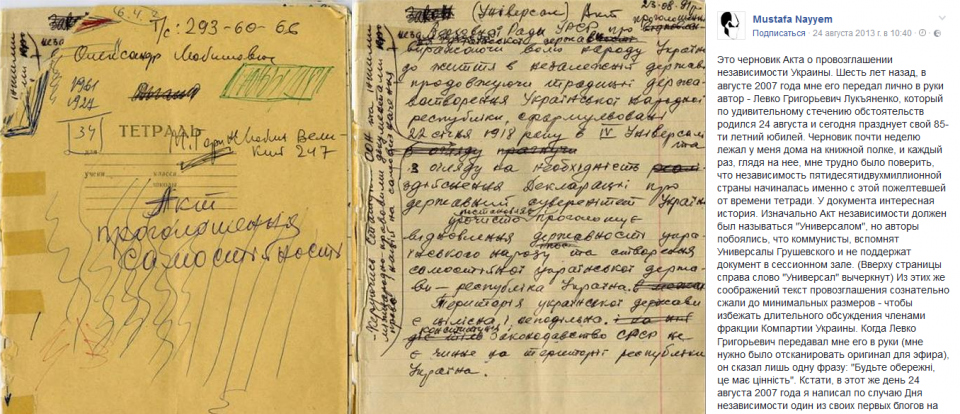 Т/с: 293-60-66
Олександр
1961
1924
34
ТЕТРАДЬ
247
учени
класса
школы
Акт
проголошення
самостійности
Закон (Універсал) Акт
23-08-91 р.
Верховної Ради УРСР про
волю народу України
до життя в незалежній державі
продовжуючи традиції держа-
вотворення Української Народної
республіки, сформульовані
22 січня 1918 року в IV Універсалі
з огляду на необхідність
здійснення Декларації про
державний суверенітет України
урочисто проголошує
відновлення державності укра-
їнського народу та створення
самостійної української держа-
ви - республіка Україна.
Територія української держави
є цілісна і неподільна.
законодавство СРСР не
є чинне на території республіки
Україна.
Mustafa Nayyem
Подписаться · 24 августа 2013 г. в 10:40 ·
Это черновик Акта о провозглашении
независимости Украины. Шесть лет назад, в
августе 2007 года мне его передал лично в руки
автор - Левко Григорьевич Лукъяненко, который
по удивительному стечению обстоятельств
родился 24 августа и сегодня празднует свой 85-
ти летний юбилей. Черновик почти неделю
лежал у меня дома на книжной полке, и каждый
раз, глядя на нее, мне трудно было поверить,
что независимость пятидесятидвухмиллионной
страны начиналась именно с этой пожелтевшей
от времени тетради. У документа интересная
история. Изначально Акт независимости должен
был называться "Универсалом", но авторы
побоялись, что коммунисты, вспомнят
Универсалы Грушевского и не поддержат
документ в сессионном зале. (Вверху страницы
справа слово "Универсал" вычеркнут) Из этих же
соображений текст провозглашения сознательно
сжали до минимальных размеров - чтобы
избежать длительного обсуждения членами
фракции Компартии Украины. Когда Левко
Григорьевич передавал мне его в руки (мне
нужно было отсканировать оригинал для эфира),
он сказал лишь одну фразу: "Будьте обережні,
це має цінність". Кстати, в этот же день 24
августа 2007 года я написал по случаю Дня
независимости один из своих первых блогов на